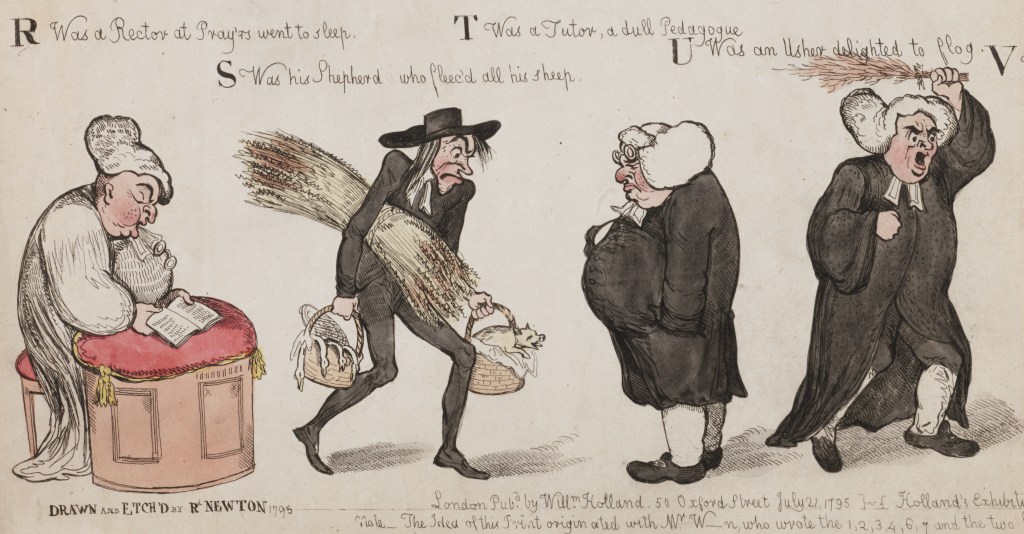 R Was a Rector at Pray'rs went to sleep.
S Was his Shepherd who fleec'd all his sheep.
T Was a Tutor, a dull Pedagogue
U Was an Usher delighted to flog.
V
DRAWN AND ETCH'D BY Rd. NEWTON 1795
London Pubd. by Willm. Holland. 50 Oxford Street July 21, 1795 Holland's Exhibit
Note The Idea of this Print originated with Mr. W—n, who wrote the 1, 2, 3, 4, 6, 7 and the two